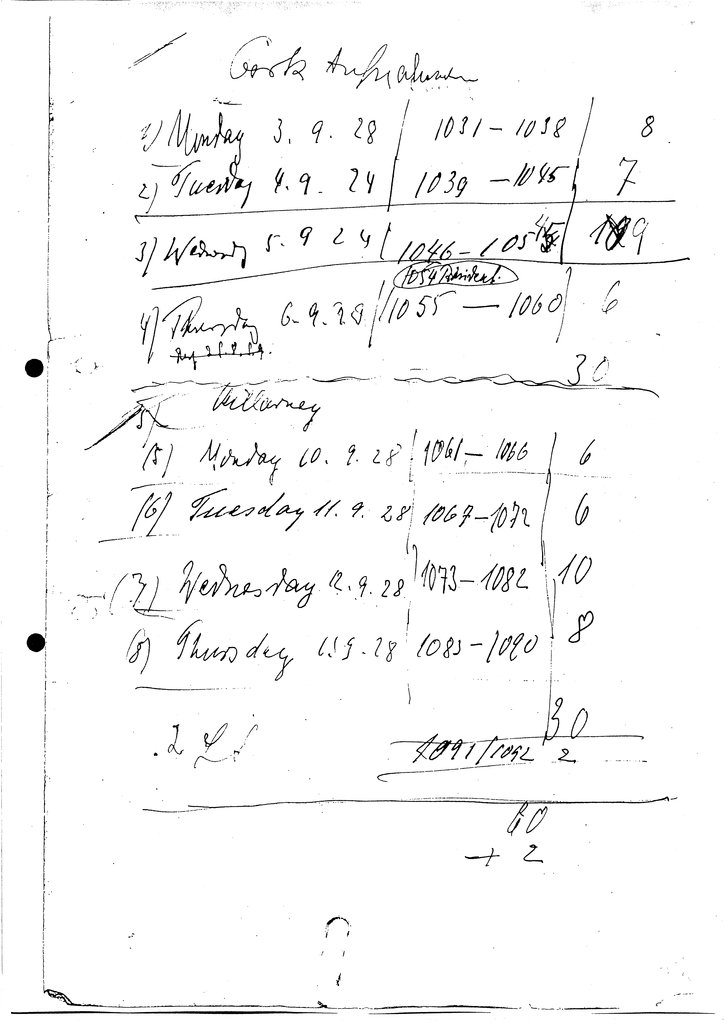 Cork Aufnahmen
1) Monday 3. 9. 28 1031 – 1038 8
2) Tuesday 4. 9. 24 1039 – 1045 7
3) Wednesday 5. 9 24 1046 – 1054 9
1054 President.
4) Thursday 6. 9. 28 1055 — 1060 6
30
5) Killarney
(5) Monday 10. 9. 28 1061 – 1066 6
(6) Tuesday 11. 9. 28 1067 – 1072 6
(7) Wednesday 12. 9. 28 1073 – 1082 10
(8) Thursday 13. 9. 28 1083 – 1090 8
30
.2 1091/1092 2
60
+ 2